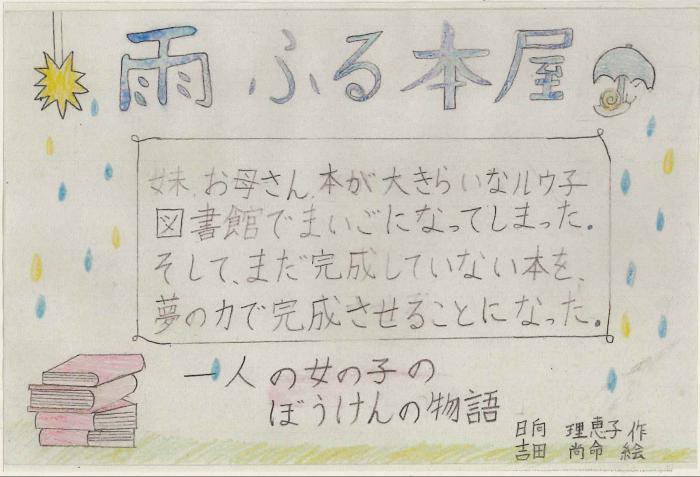 雨ふる本屋
妹、お母さん、本が大きらいなルウ子
図書館でまいごになってしまった。
そして、まだ完成していない本を、
夢の力で完成させることになった。
一人の女の子の
ぼうけんの物語
日向 理恵子 作
吉田 尚命 絵